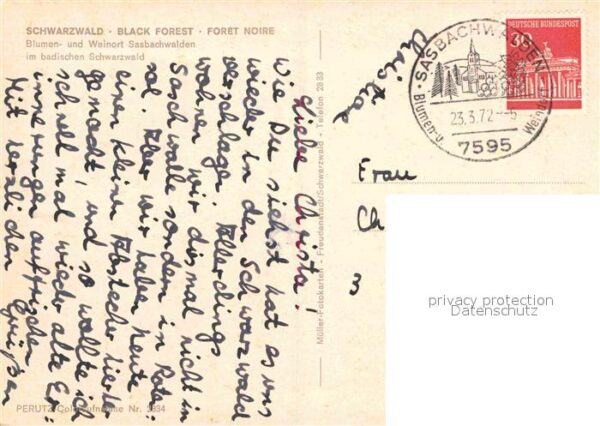 SCHWARZWALD · BLACK FOREST · FORÊT NOIRE
Blumen- und Weinort Sasbachwalden
im badischen Schwarzwald
Liebe Christa!
Wie Du siehst hat es uns
wieder in den Schwarzwald
verschlagen. Allerdings
wohnen wir diesmal nicht in
Sasbachwalde sondern in
Aber wir haben heute
einen kleinen Abstecher hierher
gemacht, und so wollte ich
schnell mal wieder alte Er=
innerungen auffrischen
Mit herzlichen Grüßen
Christa
PERUTZ Coloraufnahme Nr. 2834
Müller-Fotokarten · Freudenstadt/Schwarzwald · Telefon 2833
SASBACHWALDEN
Blumen-u.
23.3.72
7595
DEUTSCHE BUNDESPOST
30
Frau
Ch
3
privacy protection
Datenschutz